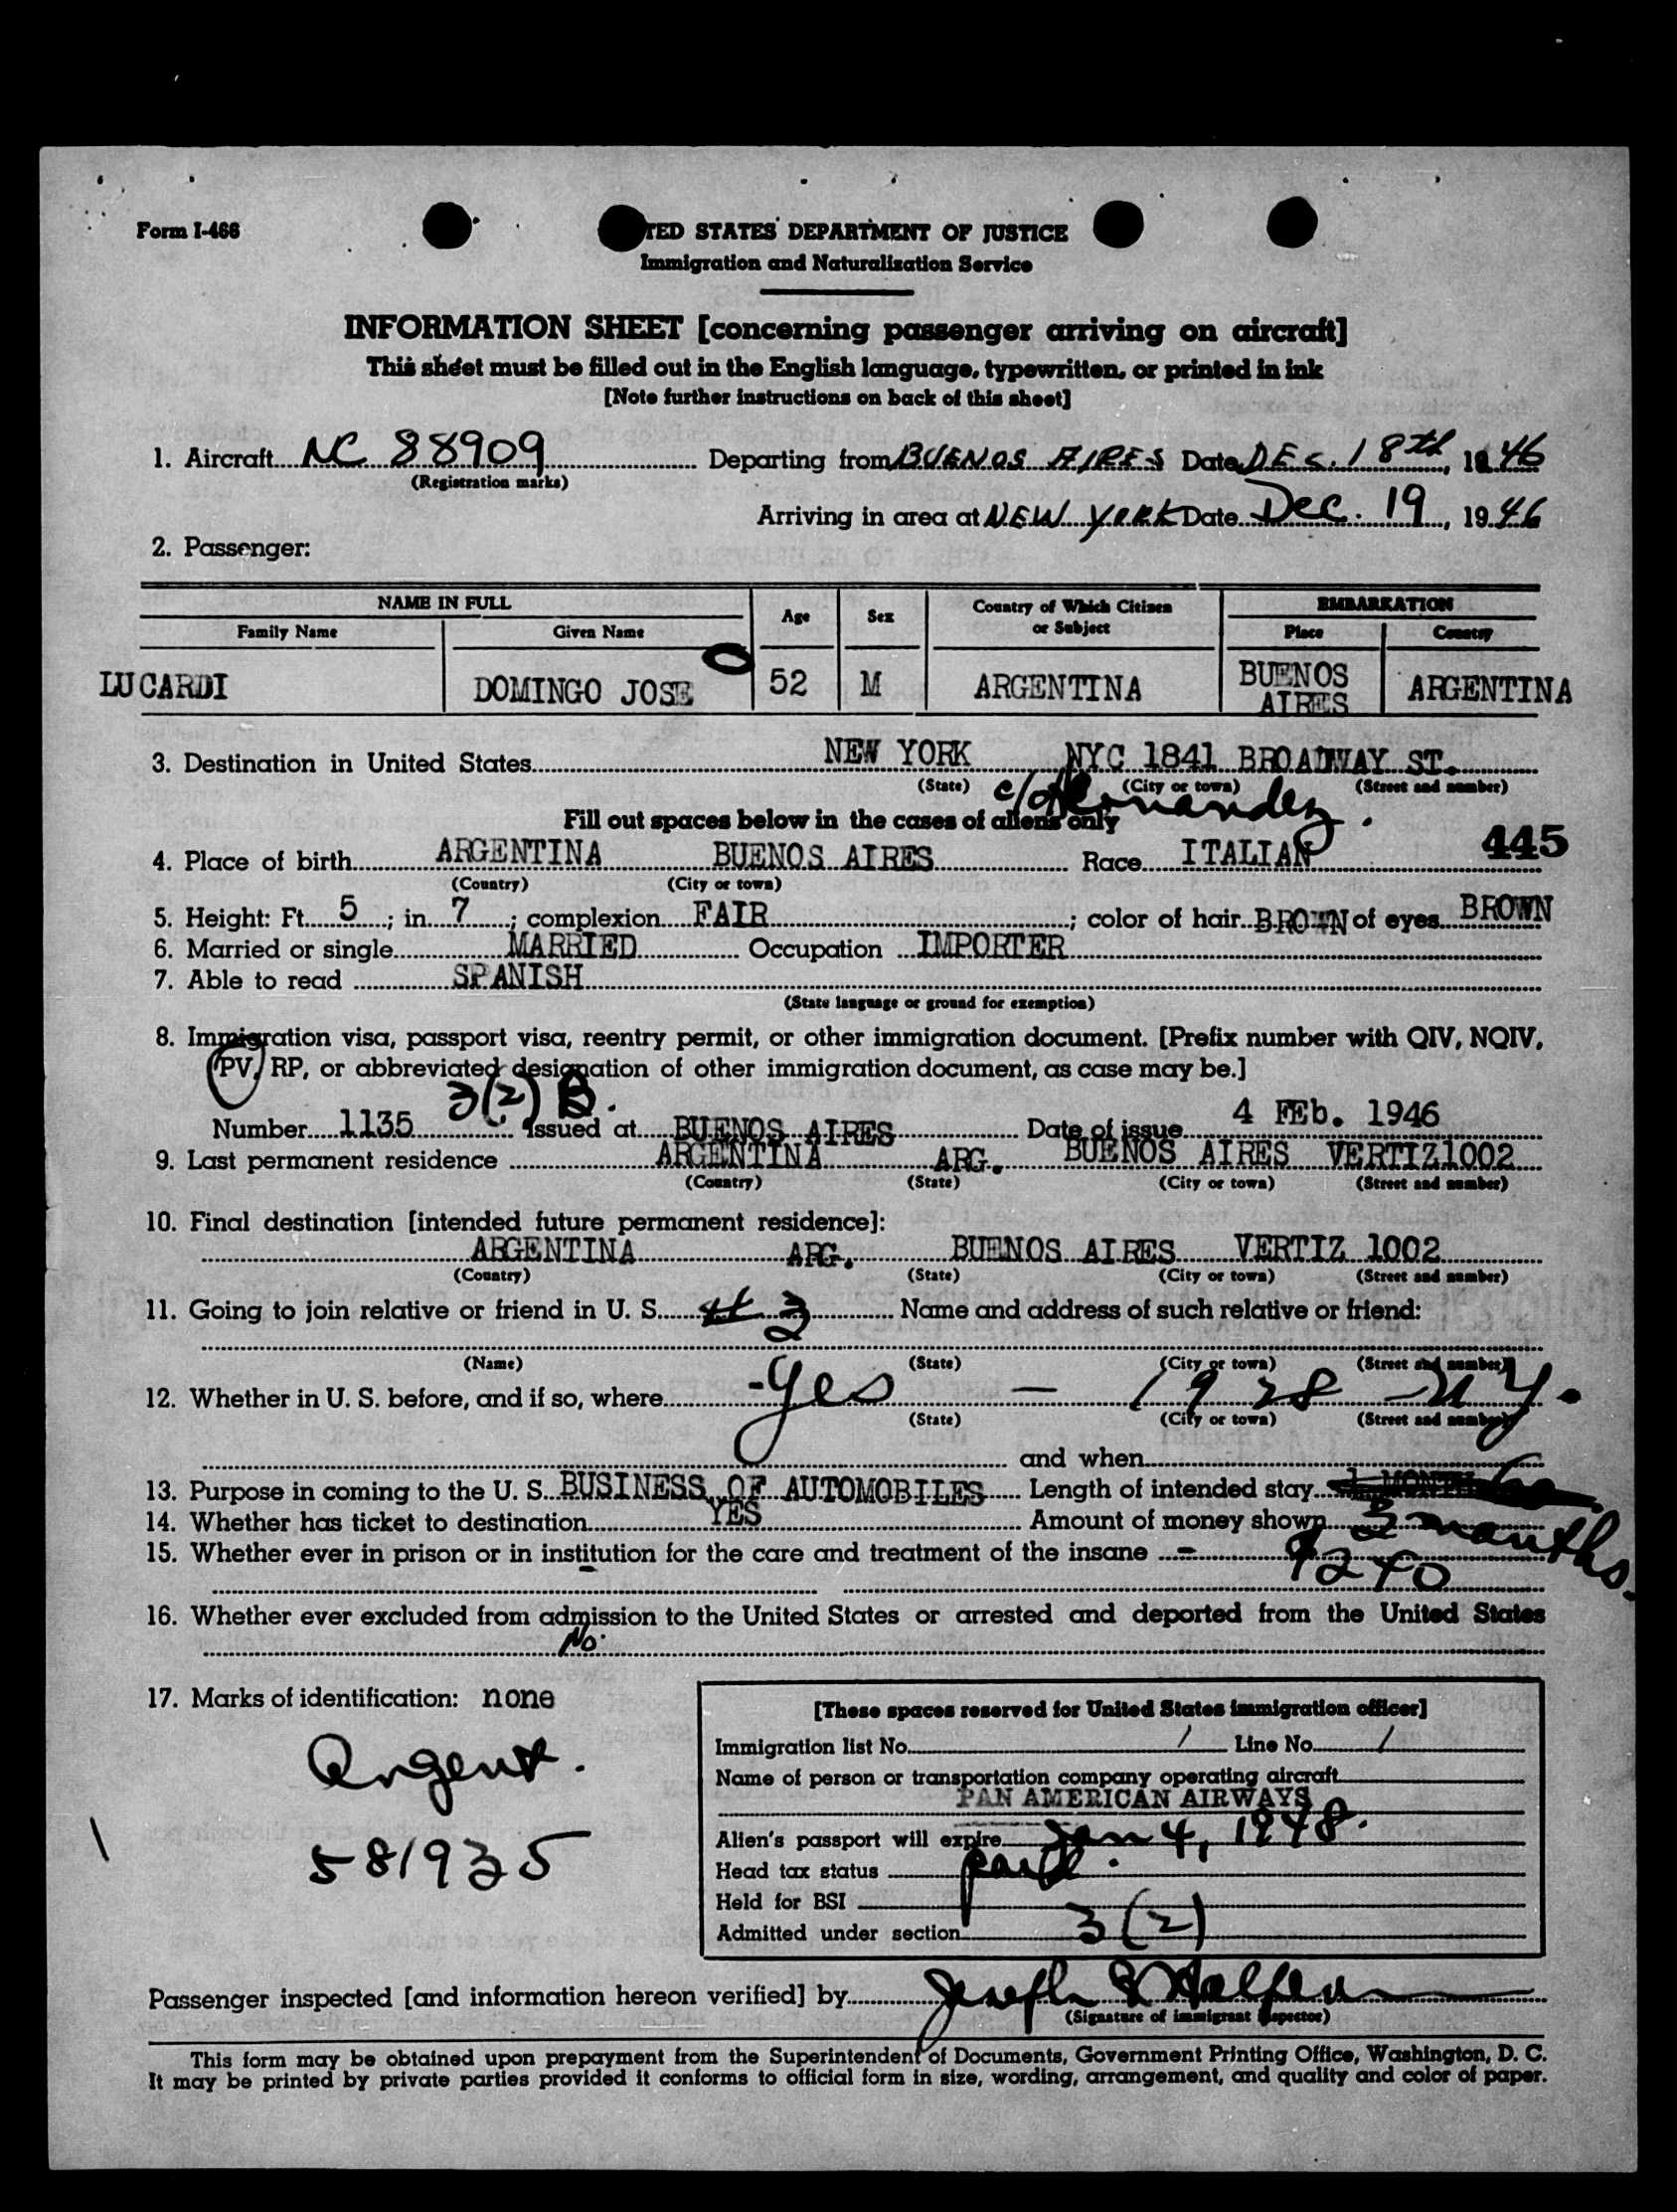 Form I-466
TED STATES DEPARTMENT OF JUSTICE
Immigration and Naturalization Service
INFORMATION SHEET [concerning passenger arriving on aircraft]
This sheet must be filled out in the English language, typewritten, or printed in ink
[Note further instructions on back of this sheet]
1. Aircraft NC 88909 Departing from BUENOS AIRES Date DEC. 18th, 1946
(Registration marks)
Arriving in area at NEW YORK Date Dec. 19, 1946
2. Passenger:
NAME IN FULL Age Sex Country of Which Citizen or Subject EMBARKATION
Family Name Given Name Place Country
LUCARDI DOMINGO JOSE 52 M ARGENTINA BUENOS AIRES ARGENTINA
3. Destination in United States NEW YORK NYC 1841 BROADWAY ST.
(State) (City or town) (Street and number)
c/o Hernandez.
Fill out spaces below in the cases of aliens only
445
4. Place of birth ARGENTINA BUENOS AIRES Race ITALIAN
(Country) (City or town)
5. Height: Ft. 5; in. 7; complexion FAIR; color of hair BROWN of eyes BROWN
6. Married or single MARRIED Occupation IMPORTER
7. Able to read SPANISH
(State language or ground for exemption)
8. Immigration visa, passport visa, reentry permit, or other immigration document. [Prefix number with QIV, NQIV,
PV, RP, or abbreviated designation of other immigration document, as case may be.]
3(2) B.
Number 1135 Issued at BUENOS AIRES Date of issue 4 FEb. 1946
9. Last permanent residence ARGENTINA ARG. BUENOS AIRES VERTIZ1002
(Country) (State) (City or town) (Street and number)
10. Final destination [intended future permanent residence]:
ARGENTINA ARG. BUENOS AIRES VERTIZ 1002
(Country) (State) (City or town) (Street and number)
11. Going to join relative or friend in U. S. # 3 Name and address of such relative or friend:
(Name) (State) (City or town) (Street and number)
12. Whether in U. S. before, and if so, where - Yes - 1928 - N Y.
(State) (City or town) (Street and number)
and when
13. Purpose in coming to the U. S. BUSINESS OF AUTOMOBILES Length of intended stay
14. Whether has ticket to destination YES Amount of money shown 3 months.
15. Whether ever in prison or in institution for the care and treatment of the insane -
16. Whether ever excluded from admission to the United States or arrested and deported from the United States
No.
17. Marks of identification: none
Argent.
581935
[These spaces reserved for United States immigration officer]
Immigration list No. 1 Line No. 1
Name of person or transportation company operating aircraft
PAN AMERICAN AIRWAYS
Alien's passport will expire Jan 4, 1948.
Head tax status paid.
Held for BSI
Admitted under section 3(2)
Passenger inspected [and information hereon verified] by Joseph Halpern
(Signature of immigrant inspector)
This form may be obtained upon prepayment from the Superintendent of Documents, Government Printing Office, Washington, D. C.
It may be printed by private parties provided it conforms to official form in size, wording, arrangement, and quality and color of paper.